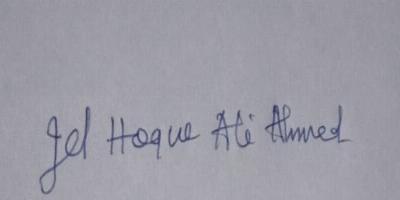 Jel Hoque Ali Ahmed